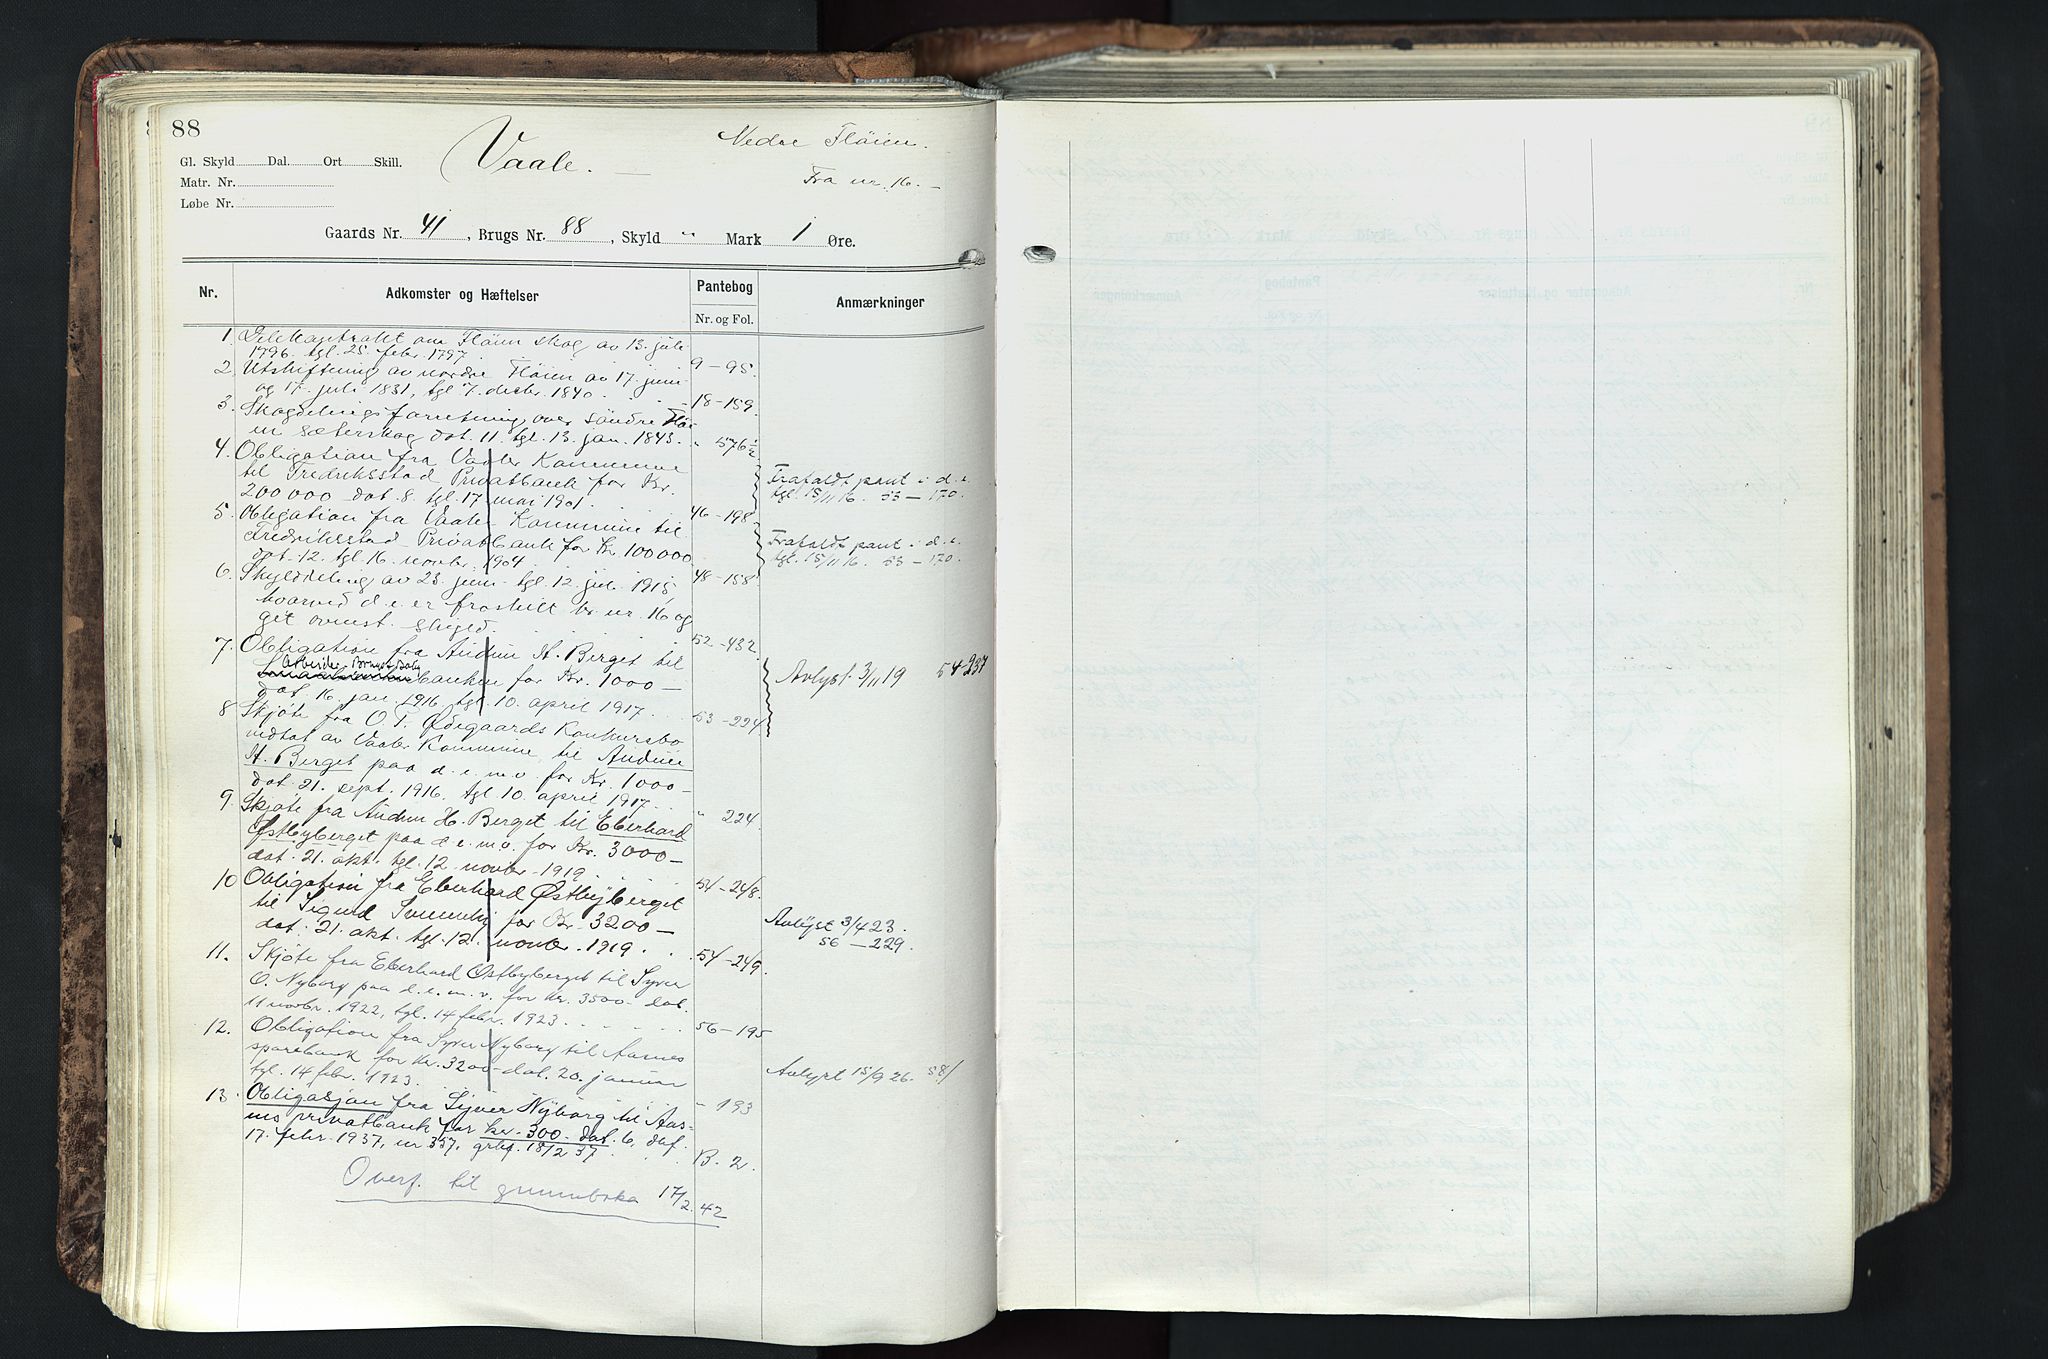 88
Vaale.
Nedre Fløien.
Gl. Skyld Dal. Ort Skill.
Matr. Nr.
Fra nr. 16.
Løbe Nr.
Gaards Nr. 41, Brugs Nr. 88, Skyld " Mark 1 Øre.
Nr. Adkomster og Hæftelser Pantebog Anmærkninger
Nr. og Fol.
1. Delekontrakt om Fløien skog av 13. juli
1796. tgl. 25. febr. 1797. 9-95.
2. Utskiftning av nordre Fløien av 17. juni
og 17. juli 1831, tgl 7. decbr. 1840. 18-159.
3. Skogdelingsforretning over søndre Fløi-
en sæterskog dat. 11. tgl. 13. jan. 1843. " 576½
4. Obligation fra Vaaler Kommune
til Fredriksstad Privatbank for Kr.
200 000 dat. 8. tgl. 17. mai 1901. 46-198
Frafaldt pant i d. e.
tgl. 15/11 16. 53-170.
5. Obligation fra Vaaler Kommune til
Fredriksstad Privatbank for Kr. 100 000
dat. 12. tgl. 16. novbr. 1904 48-158
Frafaldt pant i d. e.
tgl. 15/11 16. 53-170.
6. Skylddeling av 23. juni tgl. 12. juli 1915,
hvorved d. e. er fraskilt br. nr. 16 og
git ovenst. skyld. 52-432.
7. Obligation fra Audun H. Berget til
Arbeider-Bruk & Bolig
banken for Kr. 1000-
dat. 16. jan. 1916, tgl. 10. april 1917. 53-224
Avlyst 3/11 19 54-237
8 Skjøte fra O. T. Ødegaards Konkursbo
vedtat av Vaaler Kommune til Audun
H. Berget paa d. e. m. v. for Kr. 1000-
dat. 21. sept. 1916. tgl. 10. april 1917. " 224.
9. Skjøte fra Audun H. Berget til Eberhard
Østbyberget paa d. e. m. v. for Kr. 3000-
dat. 21. okt. tgl. 12. novbr. 1919. 54-248.
10 Obligation fra Eberhard Østbyberget
til Sigurd for Kr. 3200-
dat. 21. okt. tgl. 12. novbr. 1919. 54-249.
Avlyst 3/4 23.
56-229.
11. Skjøte fra Eberhard Østbyberget til Syver
O. Nyborg paa d. e. m. v. for kr. 3500- dat.
11 novbr. 1922, tgl. 14 febr. 1923. 56-195
12. Obligation fra Syver Nyborg til Aasnes
sparebank for kr. 3200- dat. 20. januar
tgl. 14 febr. 1923. " 193
Avlyst 15/9 26. 58/
13. Obligasjon fra Syver Nyborg til Aas-
nes privatbank for kr. 300- dat. 6, daf.
17. febr. 1937, nr 357, grbf. 18/2 37. B. 2.
Overf. til grunnboka 17/2. 42